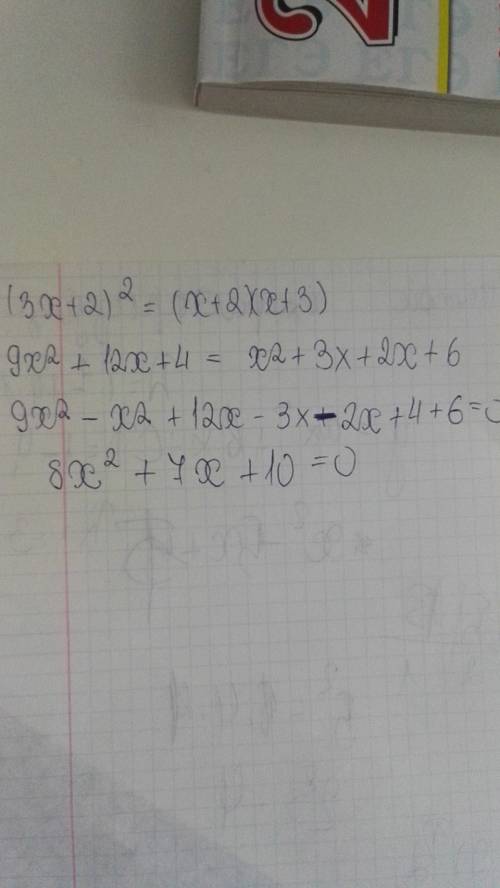 (3x+2)² = (x+2)(x+3)
9x² + 12x+4 = x2+3x+2x+6
9x² - x2 +12x - 3x-2x+4+6=0
8x² + 7x +10 =0